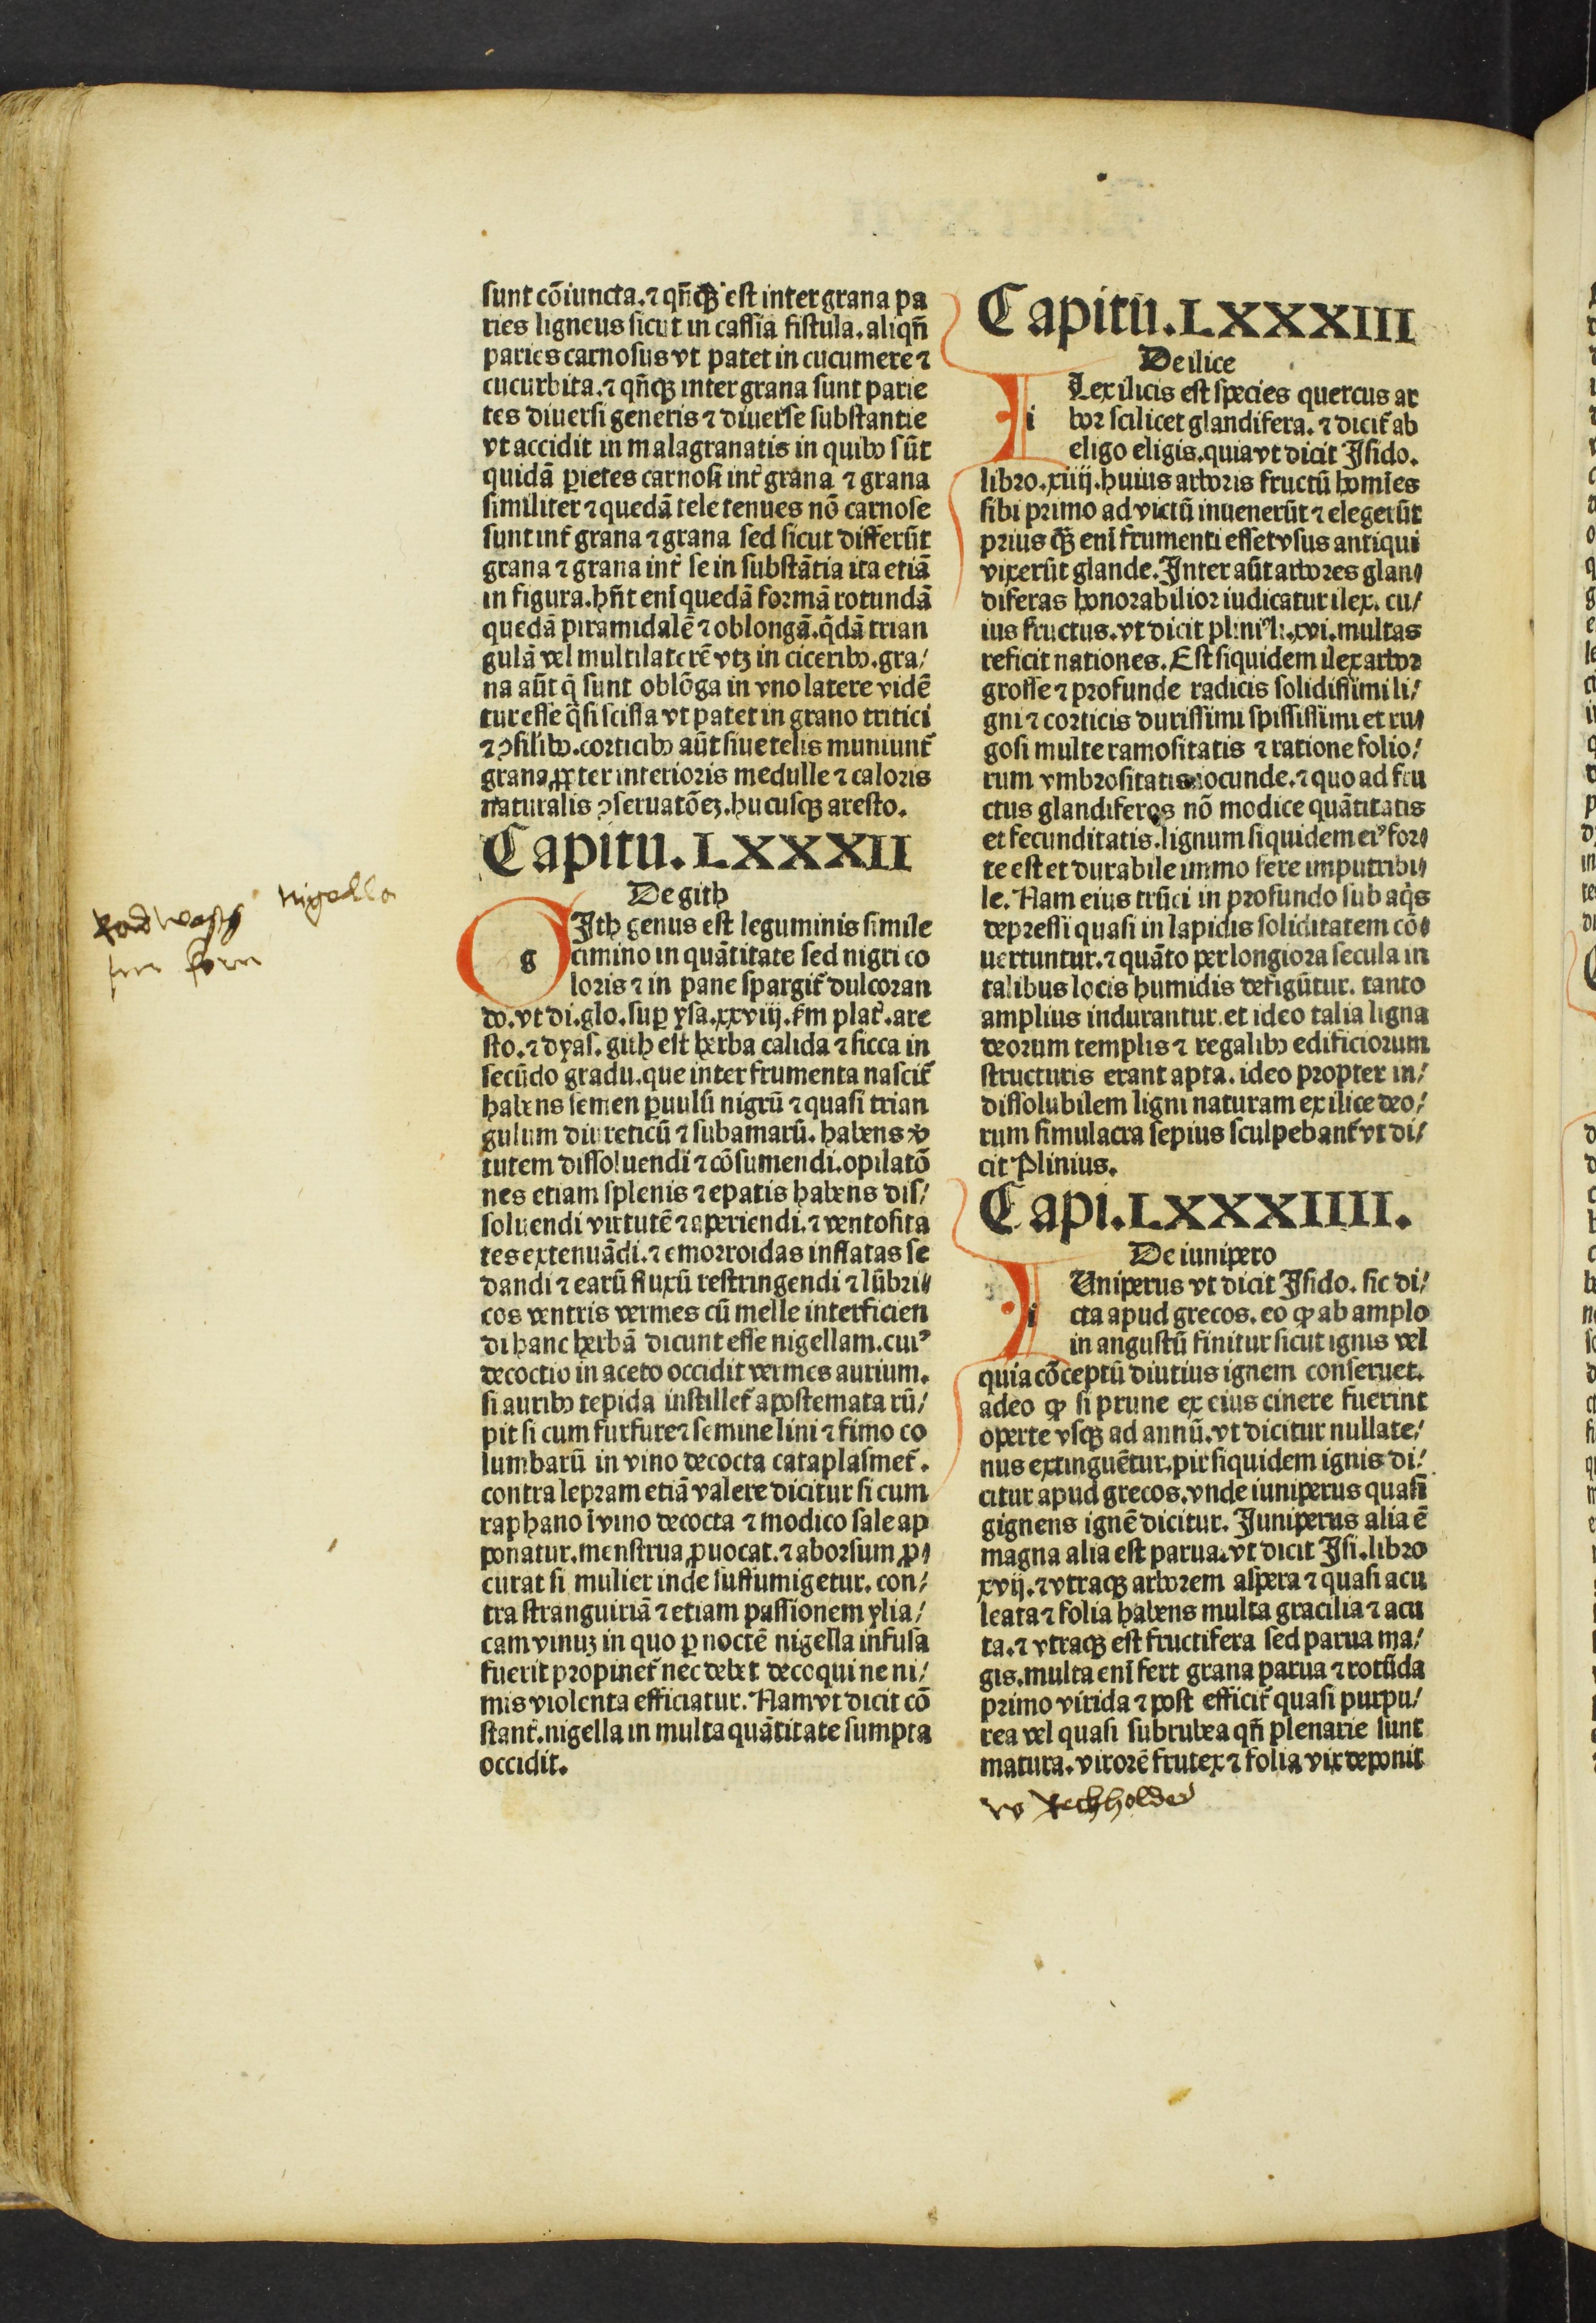 sunt cōiuncta. ⁊ qn̄qꝫ est inter grana pa
ries ligneus sicut in cassia fistula. aliqn̄
paries carnosus vt patet in cucumere ⁊
cucurbita. ⁊ qn̄qꝫ inter grana sunt parie
tes diuersi generis ⁊ diuerse substantie
vt accidit in malagranatis in quibꝰ sūt
quidā ꝑietes carnosi int̄ grana ⁊ grana
similiter ⁊ quedā tele tenues nō carnose
sunt int̄ grana ⁊ grana sed sicut differūt
grana ⁊ grana int̄ se in substātia ita etiā
in figura. hn̄t enī quedā formā rotundā
quedā piramidalē ⁊ oblongā. q̄dā trian
gulā vel multilaterē vtꝫ in ciceribꝰ. gra/
na aūt q̄ sunt oblōga in vno latere vidē
tur esse q̄si scissa vt patet in grano tritici
⁊ ꝯsilibꝰ. corticibꝰ aūt siue telis muniunt̄
grana ꝓpter interioris medulle ⁊ caloris
naturalis ꝯseruatōeꝫ. hucusqꝫ aresto.
Capitu. LXXXII
De gith
g Ith genus est leguminis simile
cimino in quātitate sed nigri co
loris ⁊ in pane spargit̄ dulcoran
do. vt di. glo. suꝑ ysa. xxviij. ẜm plat̄. are
sto. ⁊ dyas. gith est herba calida ⁊ sicca in
secūdo gradu. que inter frumenta nascit̄
habens semen ꝑuulū nigrū ⁊ quasi trian
gulum diureticū ⁊ subamarū. habens v̄
tutem dissoluendi ⁊ cōsumendi. opilatō
nes etiam splenis ⁊ epatis habens dis/
soluendi virtutē ⁊ aperiendi. ⁊ ventosita
tes extenuādi. ⁊ emorroidas inflatas se
dandi ⁊ earū fluxū restringendi ⁊ lūbri/
cos ventris vermes cū melle interficien
di hanc herbā dicunt esse nigellam. cuiꝰ
decoctio in aceto occidit vermes aurium.
si auribꝰ tepida instillet̄ apostemata rū/
pit si cum furfure ⁊ semine lini ⁊ fimo co
lumbarū in vino decocta cataplasmet̄.
contra lepram etiā valere dicitur si cum
raphano ī vino decocta ⁊ modico sale ap
ponatur. menstrua ꝓuocat. ⁊ aborsum ꝓ/
curat si mulier inde suffumigetur. con/
tra stranguiriā ⁊ etiam passionem ylia/
cam vinuꝫ in quo ꝑ noctē nigella infusa
fuerit propinet̄ nec debet decoqui ne ni/
mis violenta efficiatur. Nam vt dicit cō
stant̄. nigella in multa quātitate sumpta
occidit.
nigella
Capitū. LXXXIII
De ilice
i Lex ilicis est species quercus ar
bor scilicet glandifera. ⁊ dicit̄ ab
eligo eligis. quia vt dicit Isido.
libro. xiiij. huius arboris fructū homīes
sibi primo ad victū inuenerūt ⁊ elegerūt
prius qꝫ enī frumenti esset vsus antiqui
vixerūt glande. Inter aūt arbores glan/
diferas honorabilior iudicatur ilex. cu/
ius fructus. vt dicit pliniꝰ li. xvi. multas
reficit nationes. Est siquidem ilex arbor
grosse ⁊ profunde radicis solidissimi li/
gni ⁊ corticis durissimi spississimi et ru/
gosi multe ramositatis ⁊ ratione folio/
rum vmbrositatis iocunde. ⁊ quo ad fru
ctus glandiferos nō modice quātitatis
et fecunditatis. lignum siquidem eiꝰ for/
te est et durabile immo fere imputribi/
le. Nam eius trūci in profundo sub aq̄s
depressi quasi in lapidis soliditatem cō/
uertuntur. ⁊ quāto per longiora secula in
talibus locis humidis defigūtur. tanto
amplius indurantur. et ideo talia ligna
deorum templis ⁊ regalibꝰ edificiorum
structuris erant apta. ideo propter in/
dissolubilem ligni naturam ex ilice deo/
rum simulacra sepius sculpebant̄ vt di/
cit Plinius.
Capi. LXXXIIII.
De iunipero
i Uniperus vt dicit Isido. sic di/
cta apud grecos. eo ꝙ ab amplo
in angustū finitur sicut ignis vel
quia cōceptū diutius ignem conseruet.
adeo ꝙ si prune ex eius cinere fuerint
operte vsqꝫ ad annū. vt dicitur nullate/
nus extinguētur. pir siquidem ignis di/
citur apud grecos. vnde iuniperus quasi
gignens ignē dicitur. Juniperus alia ē
magna alia est parua. vt dicit Isi. libro
xvij. ⁊ vtraqꝫ arborem aspera ⁊ quasi acu
leata ⁊ folia habens multa gracilia ⁊ acu
ta. ⁊ vtraqꝫ est fructifera sed parua ma/
gis. multa enī fert grana parua ⁊ rotūda
primo virida ⁊ post efficit̄ quasi purpu/
rea vel quasi subrubea qn̄ plenarie sunt
matura. virorē frutex ⁊ folia vix deponit
Rechholder